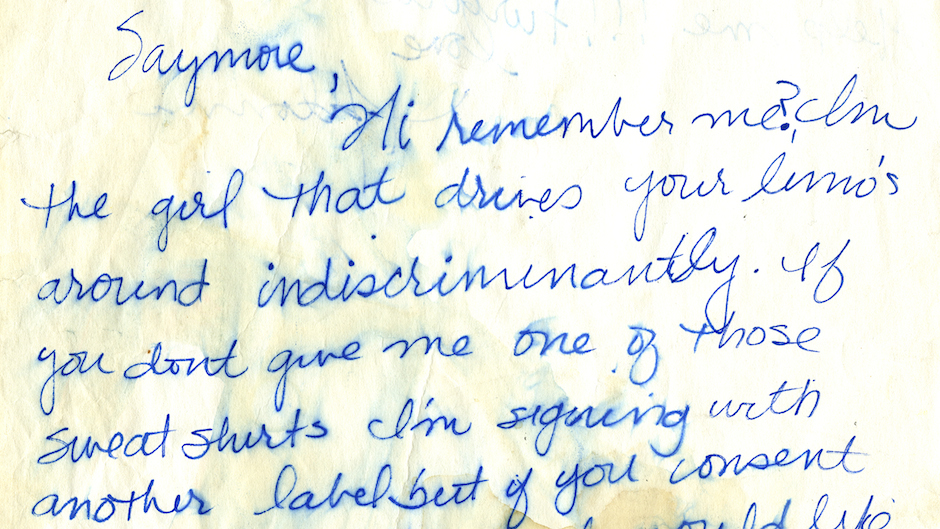 Saymore,
Hi remember me? I'm
the girl that drives your limo's
around indiscriminantly. If
you dont give me one of those
sweatshirts I'm signing with
another label but if you consent
would like